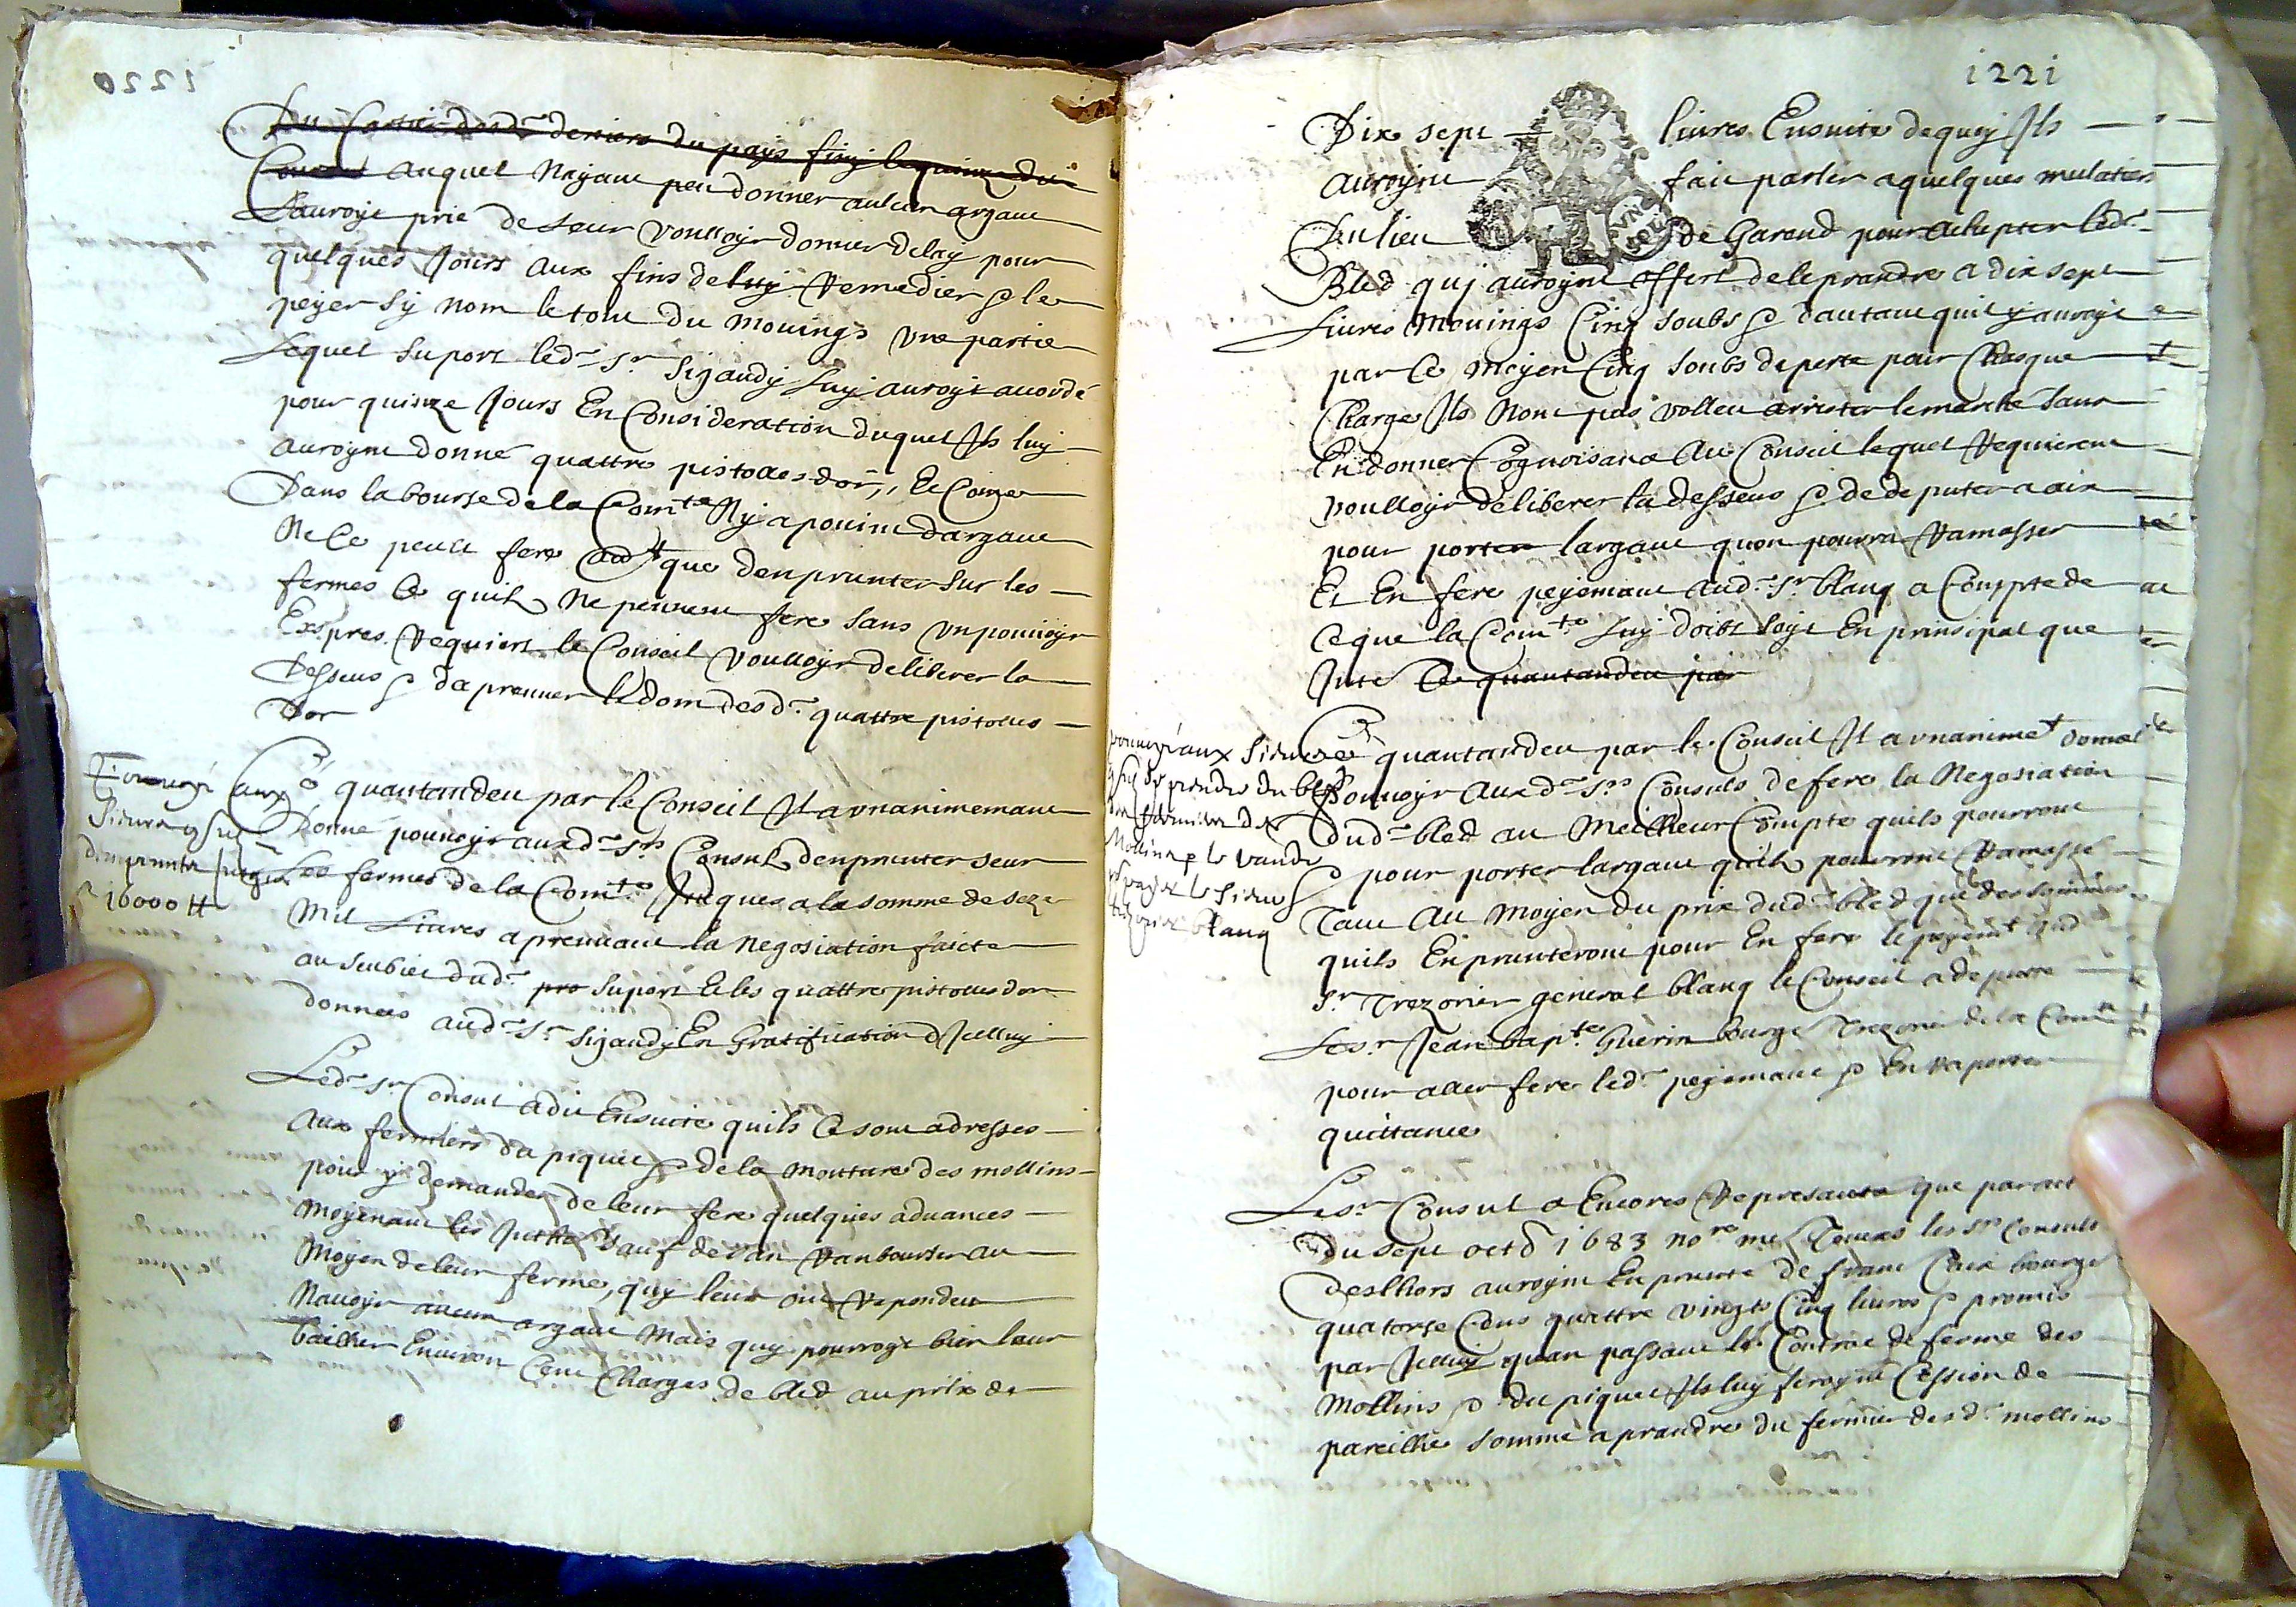 1220
Du Cartie desd. deniers du pays finy le quinze du
Courant auquel Nayant peu donner aulcun argant
Lauroyt prie de leur voulloyr donner delay pour
quelques Jours aux fins de luy Remedier & le
peyer sy nom le tout du mouings vne partie
Lequel suport led. Sr. Sigaudy Luy auroyt acordé
pour quinze Jours En Consideration duquel Ils luy
auroynt donné quattre pistolles dor,, Et Come
Dans la bourse de la Com.te Ny a pouint dargant
Ne Ce peult fere que denprunter sur les
fermes Ce quils Ne peuuent fere sans vn pouuoyr
Expres. Requiert le Conseil voulloyr deliberer la
Desseus & daprenuer le dom desd. quattre pistolles
Dor
Pouuoyr aux
Sieurs
demprunter
16000 tt
Cé quantandeu par le Conseil Il a vnanimemant
Donné pouuoyr auxd. Srs Consuls denprunter seur
Les fermes de la Com.te Jusques a la somme de seze
Mil Liures aprenuant la Negosiation faicte
au seubiet dud. pro suport Et les quattre pistolles dor
donnees aud. Sr. Sigaudy En Gratification d Icelluy
Led. Sr Consul a dit Ensuite quils Ce sont adresses
aux fermiers da piquet & de la mouture des mollins
pour y demander de leur fere quelques aduances
Moyenant les sauf de san Ranbourser au
Moyen de leur ferme, quy leur ont Repondeu
Nauoyr aucun argant Mais quy pourroyt bien leur
bailher Enuiron Cent Charges de bled au prix de
1221
Dix sept liures Ensuite dequoy Ils
auroynt fait parler a quelques mulatiers
Du lieu de Garend pour achepter led.
Bled quy auroynt offert de le prandre a dix sept
Liures Mouings Cinq soubs & dautant quil y auroyt
par Ce moyen Cinq soubs de perte pour Chasque
Charge Ils Nont pas volleu arrester le marché sans
En donner Cognoisance Au Conseil lequel Requierent
voulloyr deliberer la desseus & de deputer a aix
pour porter largant quon pourra Ramasser
Et En fere peyemant Aud. Sr. blanq a Compte de
Ce que la Com.te Luy doibt soyt En prinsipal que
Inte Ce quantandeu par
pouuoyr aux Sieurs
prendre du bled
des fermiers des
Mollins & le vandre
payer le Sieur
trezorier blanq
Cé quantandeu par le Conseil Il a vnanimet donné
Pouuoyr Auxd. Srs Consuls de fere la Negosiation
dud. bled au Meilheur Compte quils pourront
& pour porter largant quils pourront Ramasser
Tant Au Moyen du prix dud. bled que des sommes
quils Enprunteront pour En fere le peyemt aud
Sr. Trezorier general blanq le Conseil a depute
Le Sr. Jean bapte. Guerin bourge Trezorier de la Com.te
pour aller fere led. peyemant & En raporter
quittance
Le Sr. Consul a Encores Represanté que par act
Du sept octb 1683 nore me les Srs Consuls
desthors auroynt Enprunte de bourge
quatorse Cens quattre vingts Cinq liures & promis
par Icelluy quan passant le Contrac de ferme des
Mollins & du piquet Ils luy feroynt Cession de
pareilhe somme a prandre du fermier des d. mollins